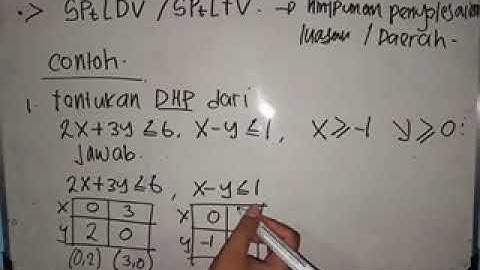 .> SPtLDV / SPtLTV. → himpunan penyelesaian
luasan / Daerah.
Contoh.
1. tentukan DHP dari
2x+3y≤6, x-y≤1, x≥-1 y≥0:
jawab.
2x+3y≤6, x-y≤1
x 0 3 x 0
y 2 0 y -1
(0,2) (3,0)